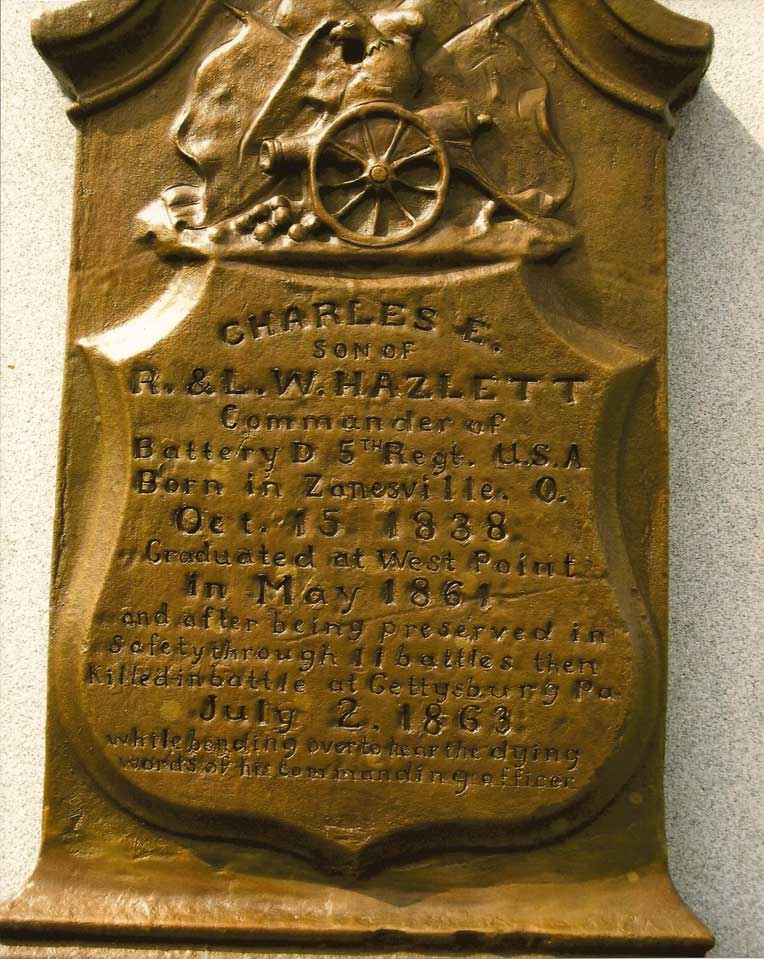 CHARLES E.
SON OF
R. & L. W. HAZLETT
Commander of
Battery D 5TH Regt. U.S.A
Born in Zanesville, O.
Oct. 15 1838
Graduated at West Point
in May 1861
and after being preserved in
Safety through 11 battles then
Killed in battle at Gettysburg Pa
July 2, 1863
while bending over to hear the dying
words of his commanding officer